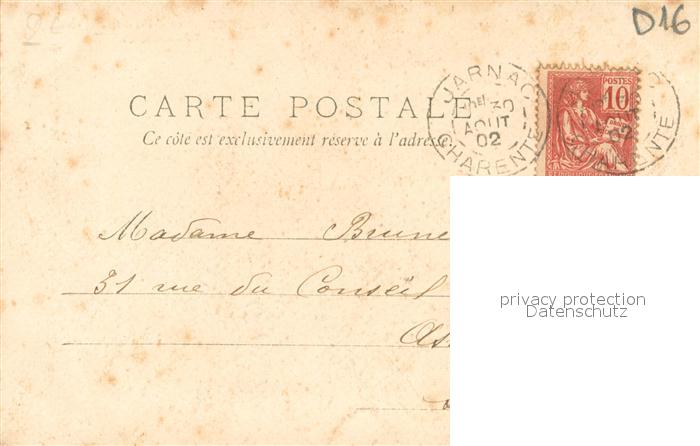 D16
JARNAC
30
AOUT
02
CHARENTE
POSTES
10
CARTE POSTALE
Ce côté est exclusivement réservé à l'adresse
Madame Brune
31 rue du Conseil
privacy protection
Datenschutz